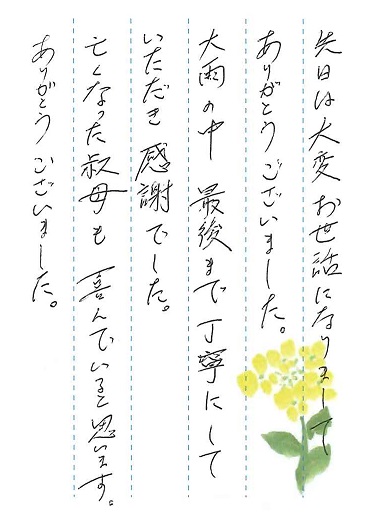 先日は大変お世話になりまして
ありがとうございました。
大雨の中 最後まで丁寧にして
いただき 感謝でした。
亡くなった叔母も 喜んでいると思います。
ありがとうございました。